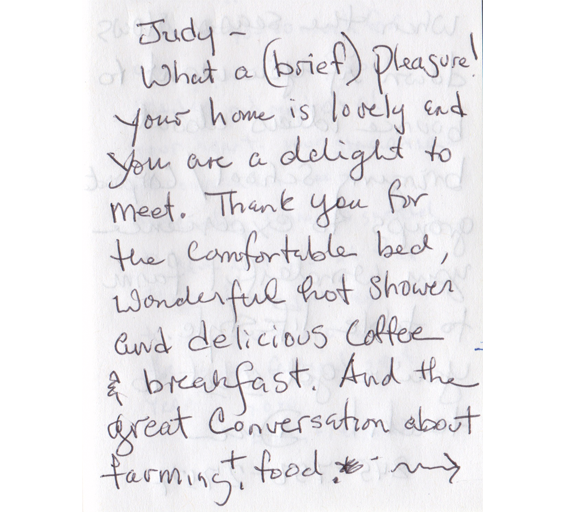 Judy –
What a (brief) pleasure!
Your home is lovely and
you are a delight to
meet. Thank you for
the comfortable bed,
wonderful hot shower
and delicious coffee
& breakfast. And the
great conversation about
farming + food.